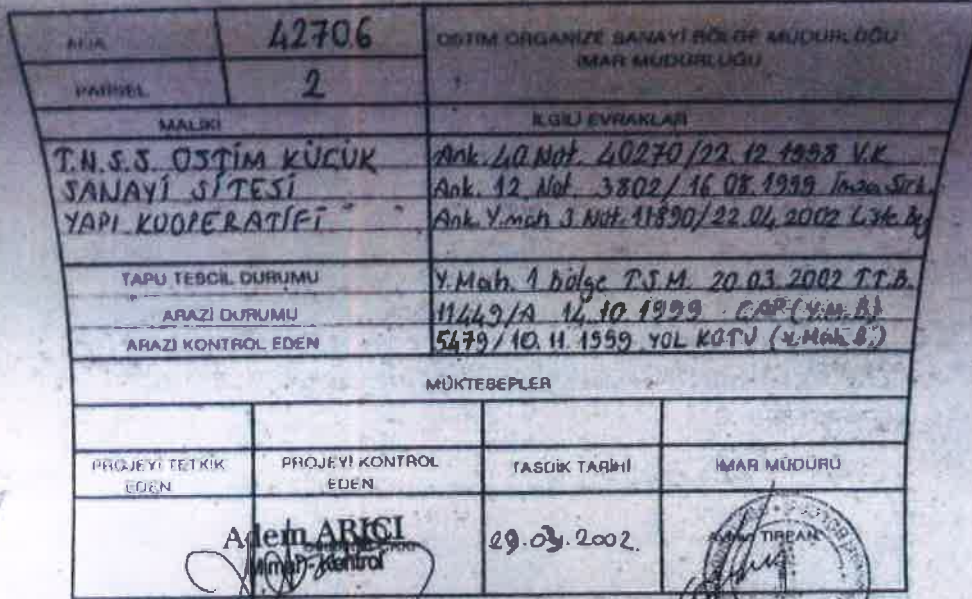 ADA 42706
OSTİM ORGANİZE SANAYİ BÖLGE MÜDÜRLÜĞÜ
İMAR MÜDÜRLÜĞÜ
PARSEL 2
MALİKİ
İLGİLİ EVRAKLAR
T.N.S.S. OSTİM KÜÇÜK
SANAYİ SİTESİ
YAPI KOOPERATİFİ
Ank. 40 Not. 40270/22.12.1998 V.K
Ank. 12 Not. 3802/16.08.1999 İmza Sirk.
Ank. Y.mah 3 Not. 11890/22.04.2002
TAPU TESCİL DURUMU Y.Mah. 1 bölge T.S.M. 20.03.2002 T.T.B.
ARAZİ DURUMU 11449/A 14.10.1999 ÇAP (Y.M.B)
ARAZİ KONTROL EDEN 5479/10.11.1999 YOL KOTU (Y.Mah.B.)
MÜKTEBEPLER
PROJEYİ TETKİK
EDEN
PROJEYİ KONTROL
EDEN
TASDİK TARİHİ
İMAR MÜDÜRÜ
Adem ARICI
Mimar-Kontrol
2002
TIREAN